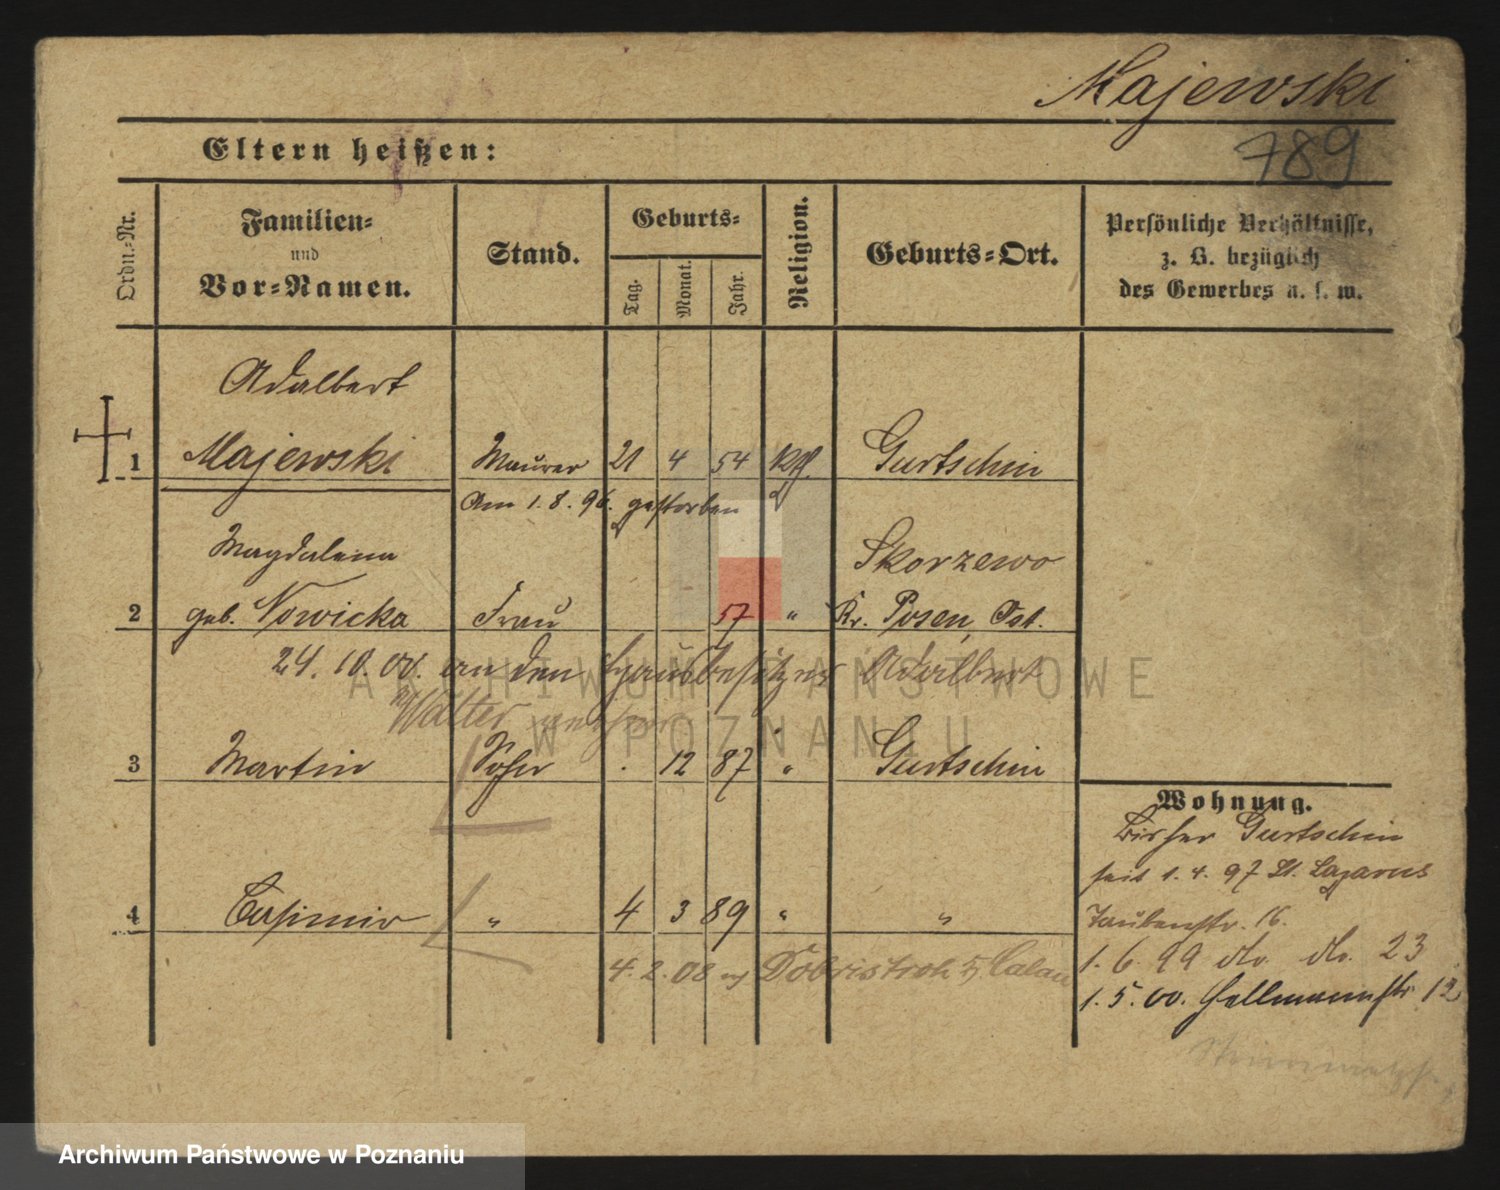 Majewski
Eltern heißen:
789
Ordn.-Nr.
Familien-
und
Vor-Namen.
Stand.
Geburts-
Tag.
Monat.
Jahr.
Religion.
Geburts-Ort.
Persönliche Verhältnisse,
z. B. bezüglich
des Gewerbes u. s. w.
Adalbert
1 Majewski Maurer 21 4 54 kth. Gurtschin
Am 1. 8. 96. gestorben
Magdalena Skorzewo
2 geb. Nowicka Frau 57 " Kr. Posen, Ost.
24. 10. 00. an den Hausbesitzer Adalbert
Walter
3 Martin Sohn . 12 87 " Gurtschin
4 Casimir " 4 3 89 " "
4. 2. 08 Dobristroh Calau
Wohnung.
Bisher Gurtschin
seit 1. 4. 97 St. Lazarus
Taubenstr. 16.
1. 6. 99 do. do. 23
1. 5. 00. Hellmannstr 12
ARCHIWUM PAŃSTWOWE
W POZNANIU
Archiwum Państwowe w Poznaniu